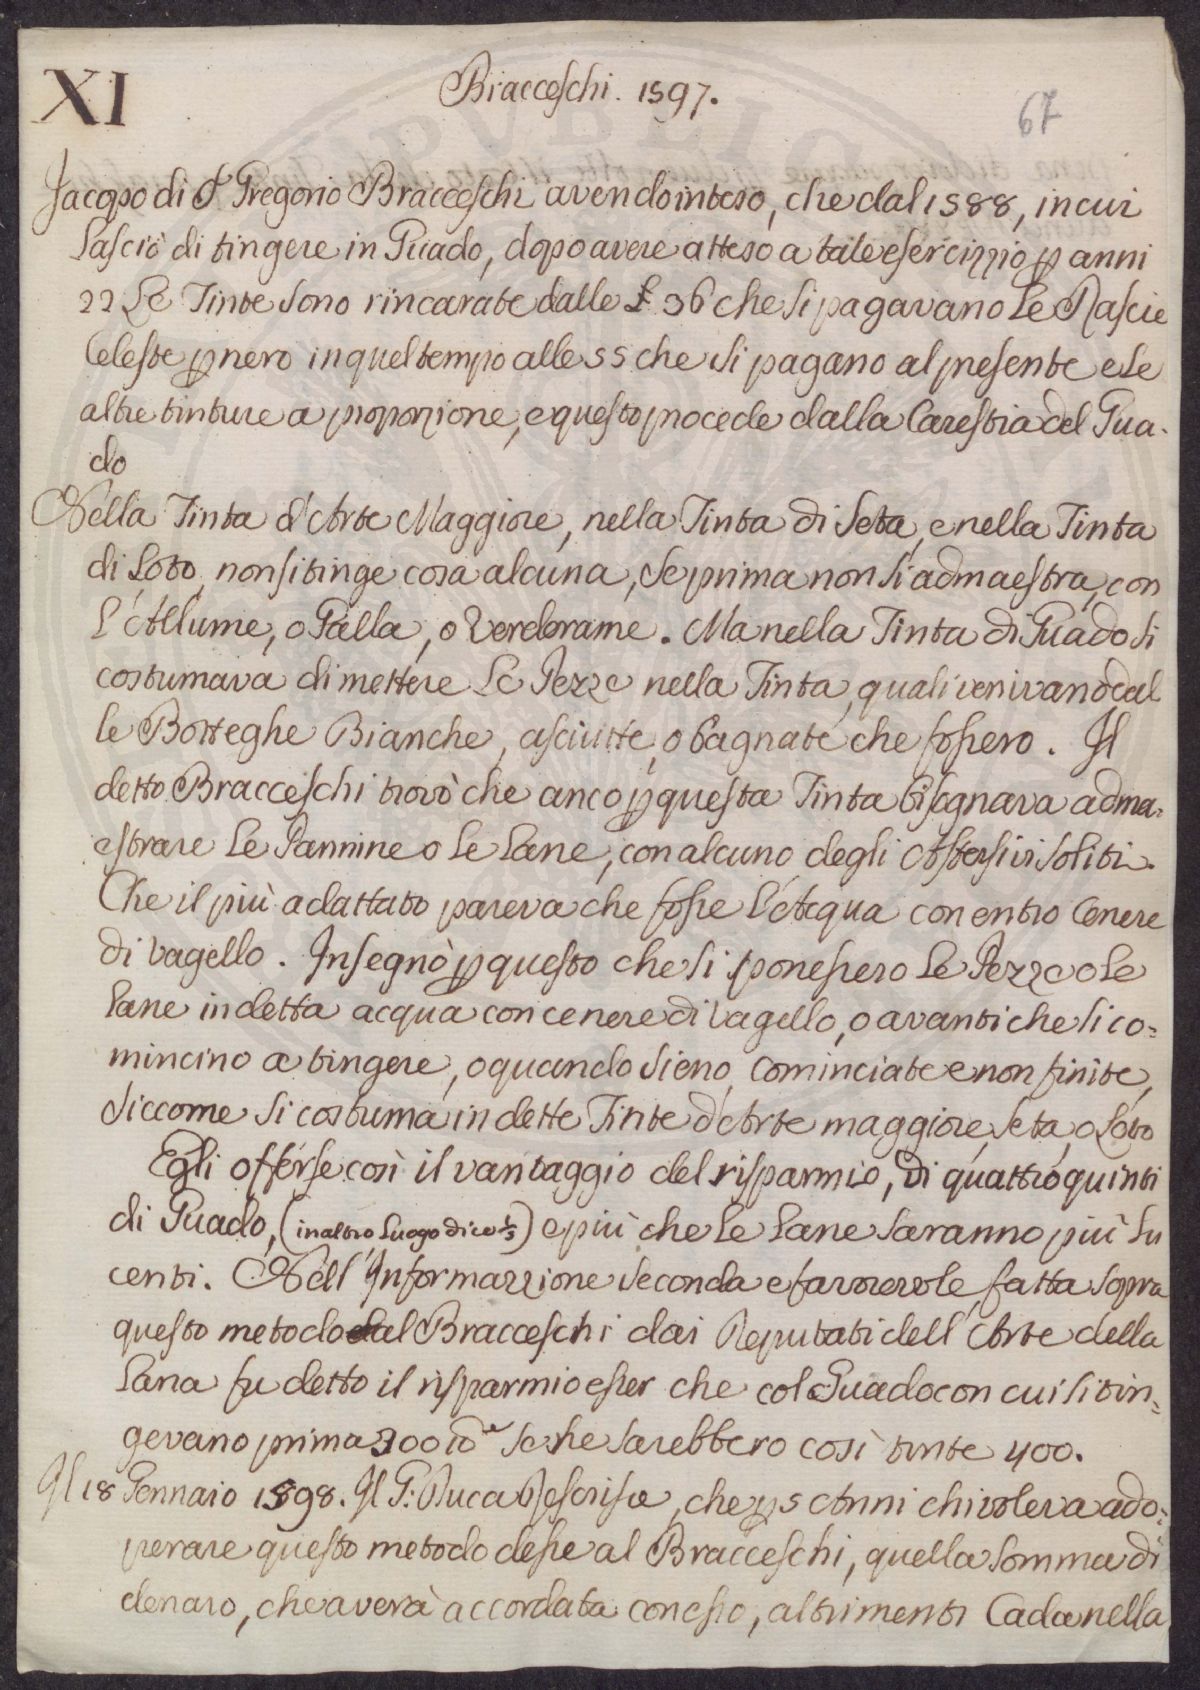 XI
Bracceschi. 1597.
67
Jacopo di Sr Gregorio Bracceschi avendo inteso, che dal 1588, in cui
Lasciò di tingere in Guado, dopo avere atteso a tale esercizzio p anni
22 Le Tinte sono rincarate dalle £ 36 che si pagavano Le Rascie
Celeste p nero in quel tempo alle 55 che si pagano al presente e Le
altre tinture a proporzione, e questo procede dalla Carestia del Gua-
do
Nella Tinta d'Arte Maggiore, nella Tinta di Seta, e nella Tinta
di Loto, non si tinge cosa alcuna, se prima non si admaestra, con
L'Allume, o Galla, o Verderame. Ma nella Tinta di Guado si
costumava di mettere Le Pezze nella Tinta, quali venivano dal
le Botteghe Bianche, asciutte, o bagnate che fossero. Il
detto Bracceschi trovò che anco p questa Tinta bisognava adma=
estrare Le Pannine o Le Lane, con alcuno degli Astersivi soliti.
Che il più adattato pareva che fosse L'Acqua con entro Cenere
di Vagello. Insegnò p questo che si ponessero Le Pezze o Le
Lane in detta acqua con cenere di Vagello, o avanti che si co=
mincino a tingere, o quando sieno Cominciate e non finite,
siccome si costuma in dette Tinte d'Arte maggiore, Seta, o Loto
Egli offerse così il vantaggio del risparmio, di quattro quinti
di Guado, (in altro Luogo dice 1/5) e più che Le Lane saranno più Lu
centi. Nell'Informazzione seconda e favorevole, fatta sopra
questo metodo dal Bracceschi dai Deputati dell'Arte della
Lana fu detto il risparmio esser che col Guado con cui si tin=
gevano prima 300 se ne sarebbero così tinte 400.
Il 18 Gennaio 1598. Il G: Duca Rescrisse, che p 5 Anni chi voleva ado=
perare questo metodo desse al Bracceschi, quella somma di
denaro, che averà accordata con esso, altrimenti Cada nella